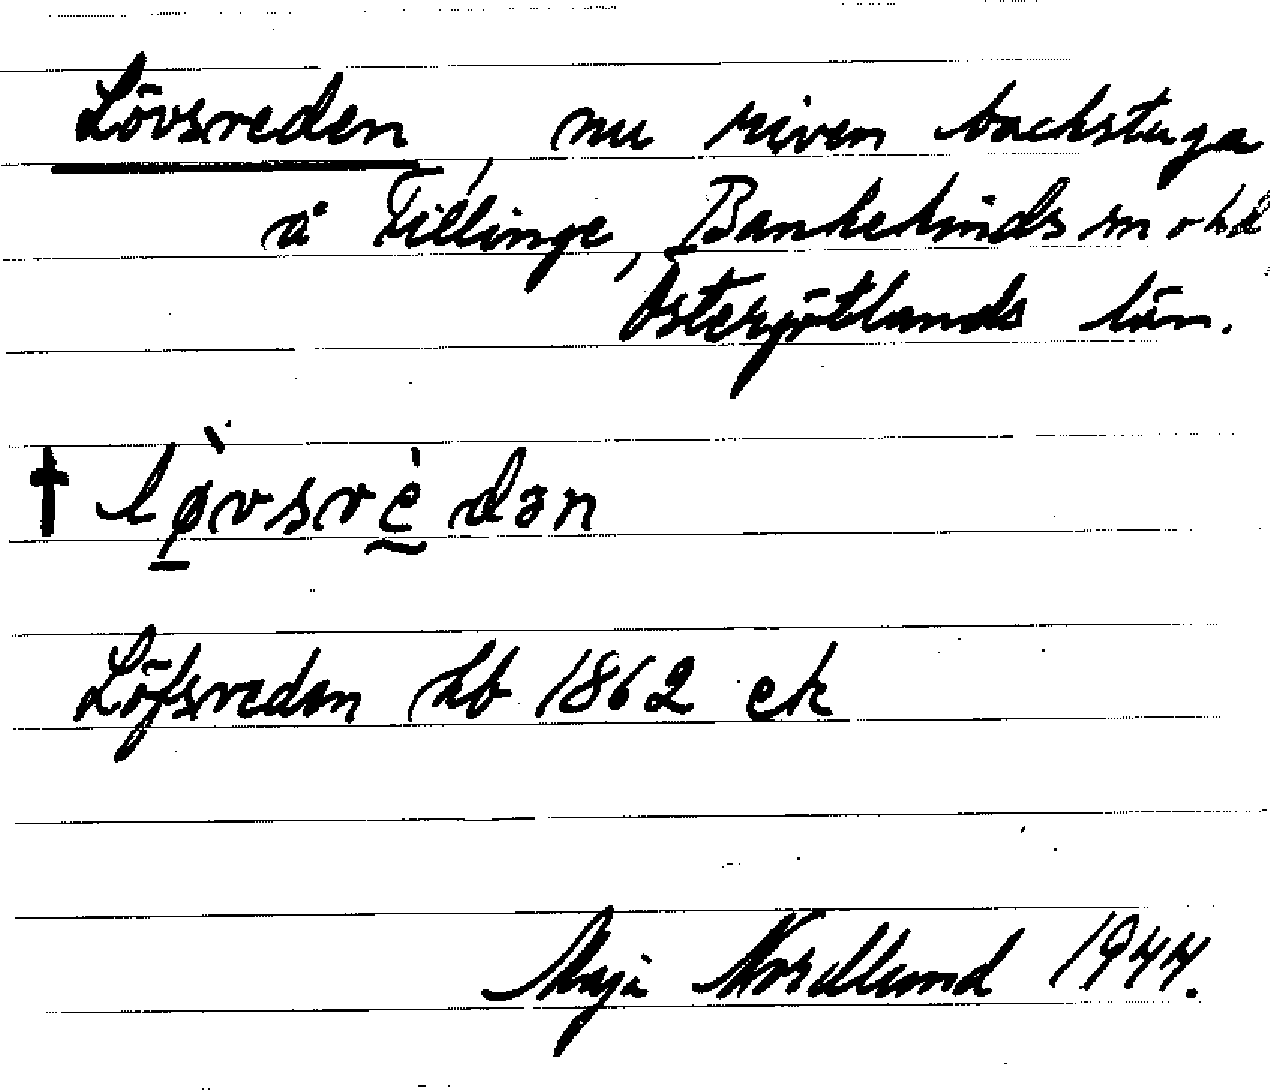 Lövsreden, nu riven backstuga
å Fillinge, Bankekinds sn o hd
Östergötlands län.
† lø̀vsrèdən
Löfsreden hb 1862 ek
Maja Nordlund 1944.